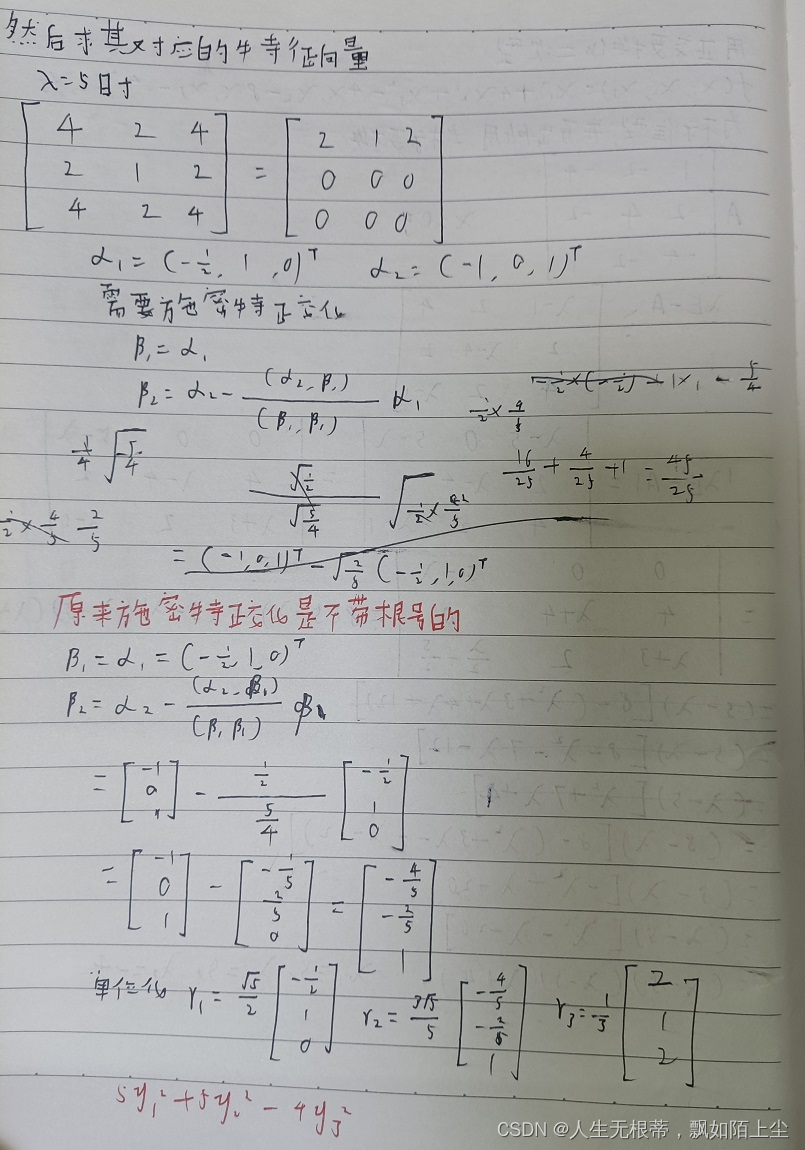 然后求其对应的特征向量
λ=5时
[4 2 4; 2 1 2; 4 2 4] = [2 1 2; 0 0 0; 0 0 0]
α₁=(-1/2, 1, 0)ᵀ α₂=(-1, 0, 1)ᵀ
需要施密特正交化
β₁=α₁
β₂=α₂-(α₂,β₁)/(β₁,β₁) α₁
16/25+4/25+1=45/25
=(-1,0,1)ᵀ-√(2/5)(-1/2,1,0)ᵀ
原来施密特正交化是不带根号的
β₁=α₁=(-1/2, 1, 0)ᵀ
β₂=α₂-(α₂,β₁)/(β₁,β₁) β₁
=[-1; 0; 1]-(1/2)/(5/4)[-1/2; 1; 0]
=[-1; 0; 1]-[-1/5; 2/5; 0]=[-4/5; -2/5; 1]
单位化 γ₁=√5/2[-1/2; 1; 0] γ₂=3√5/5[-4/5; -2/5; 1] γ₃=1/3[2; 1; 2]
5y₁²+5y₂²-4y₃²
CSDN @人生无根蒂，飘如陌上尘